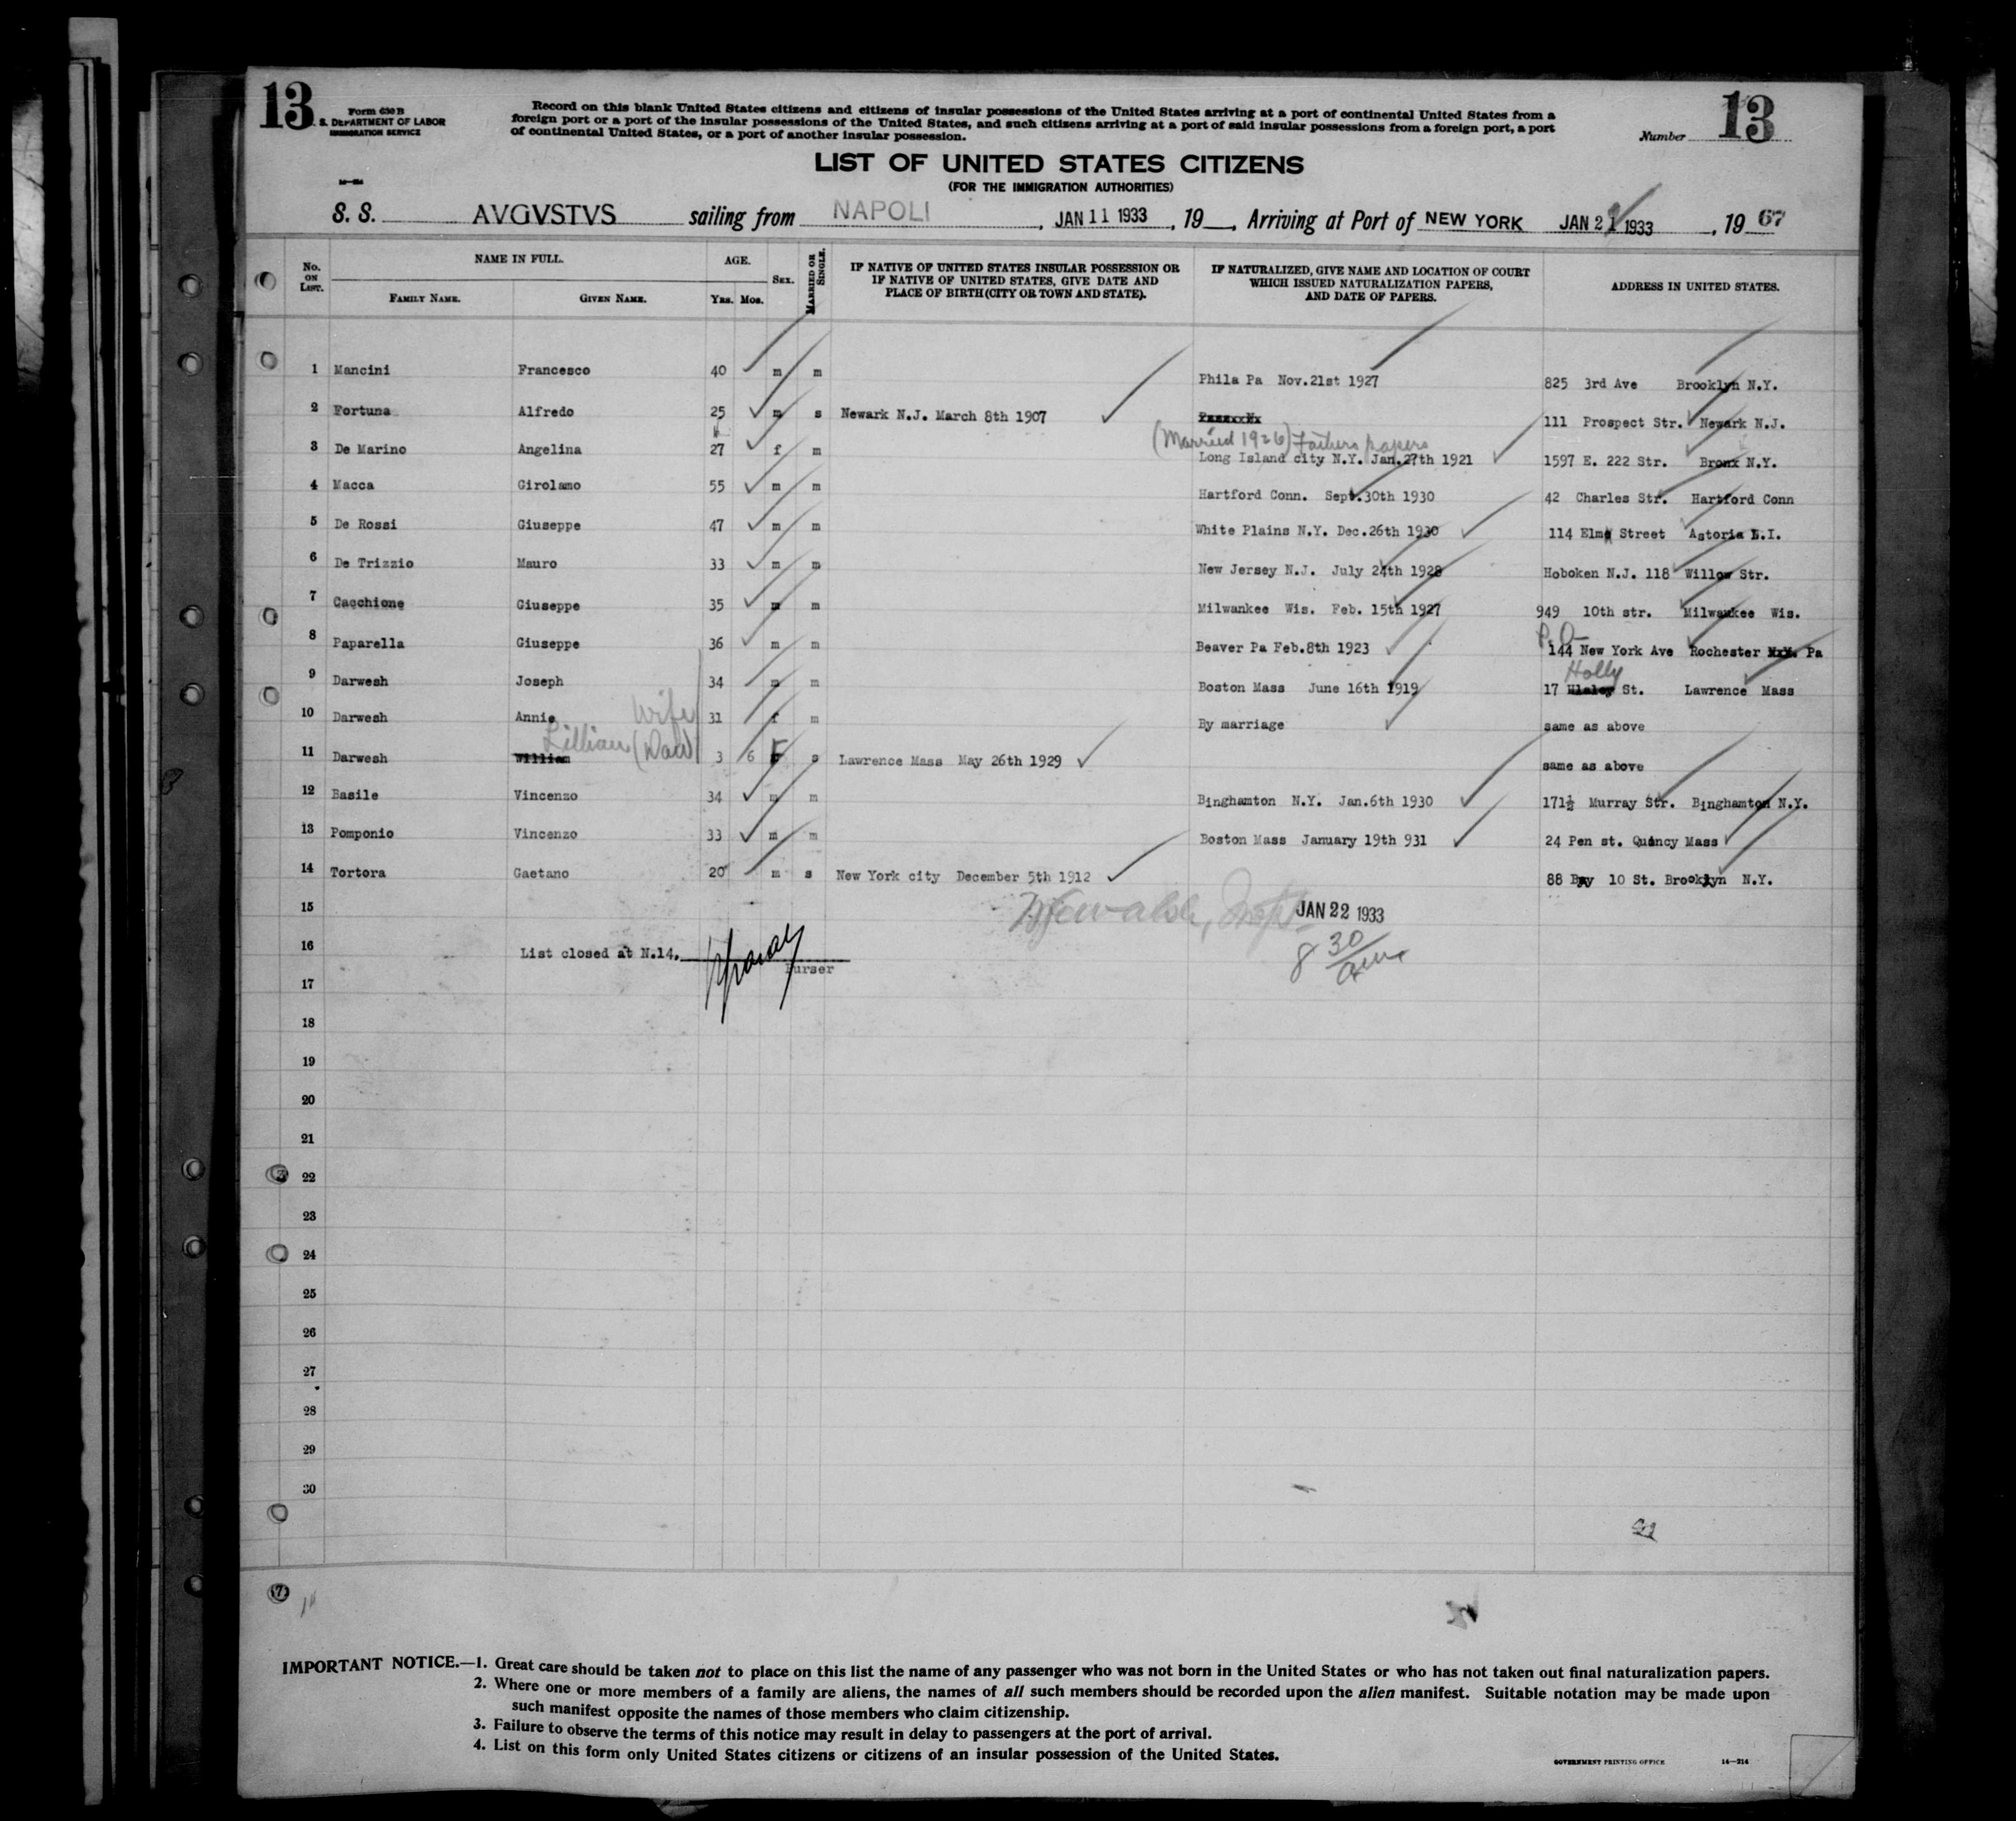 13
Form 630 B
S. DEPARTMENT OF LABOR
IMMIGRATION SERVICE
Record on this blank United States citizens and citizens of insular possessions of the United States arriving at a port of continental United States from a
foreign port or a port of the insular possessions of the United States, and such citizens arriving at a port of said insular possessions from a foreign port, a port
of continental United States, or a port of another insular possession.
Number 13
LIST OF UNITED STATES CITIZENS
(FOR THE IMMIGRATION AUTHORITIES)
14—214
S. S. AVGVSTVS sailing from NAPOLI, JAN 11 1933, 19__, Arriving at Port of NEW YORK JAN 21 1933, 19 67
No. ON LIST. NAME IN FULL. AGE. SEX. MARRIED OR SINGLE. IF NATIVE OF UNITED STATES INSULAR POSSESSION OR IF NATIVE OF UNITED STATES, GIVE DATE AND PLACE OF BIRTH (CITY OR TOWN AND STATE). IF NATURALIZED, GIVE NAME AND LOCATION OF COURT WHICH ISSUED NATURALIZATION PAPERS, AND DATE OF PAPERS. ADDRESS IN UNITED STATES.
FAMILY NAME. GIVEN NAME. Yrs. Mos.
1 Mancini Francesco 40 m m Phila Pa Nov.21st 1927 825 3rd Ave Brooklyn N.Y.
2 Fortuna Alfredo 25 m s Newark N.J. March 8th 1907 111 Prospect Str. Newark N.J.
(Married 1926) Fathers papers
3 De Marino Angelina 27 f m Long Island city N.Y. Jan.27th 1921 1597 E. 222 Str. Bronx N.Y.
4 Macca Girolamo 55 m m Hartford Conn. Sept.30th 1930 42 Charles Str. Hartford Conn
5 De Rossi Giuseppe 47 m m White Plains N.Y. Dec.26th 1930 114 Elm Street Astoria L.I.
6 De Trizzio Mauro 33 m m New Jersey N.J. July 24th 1928 Hoboken N.J. 118 Willow Str.
7 Cacchione Giuseppe 35 m m Milwankee Wis. Feb. 15th 1927 949 10th str. Milwaukee Wis.
8 Paparella Giuseppe 36 m m Beaver Pa Feb.8th 1923 144 New York Ave Rochester Pa
Holly
9 Darwesh Joseph 34 m m Boston Mass June 16th 1919 17 St. Lawrence Mass
10 Darwesh Annie wife 31 f m By marriage same as above
Lillian (Dau)
11 Darwesh William 3 6 F s Lawrence Mass May 26th 1929 same as above
12 Basile Vincenzo 34 m m Binghamton N.Y. Jan.6th 1930 171½ Murray Str. Binghamton N.Y.
13 Pomponio Vincenzo 33 m m Boston Mass January 19th 931 24 Pen st. Quincy Mass
14 Tortora Gaetano 20 m s New York city December 5th 1912 88 Bay 10 St. Brooklyn N.Y.
15 JAN 22 1933
16 List closed at N.14.
8 30/am
Purser
17
18
19
20
21
22
23
24
25
26
27
28
29
30
(7)
IMPORTANT NOTICE.—1. Great care should be taken not to place on this list the name of any passenger who was not born in the United States or who has not taken out final naturalization papers.
2. Where one or more members of a family are aliens, the names of all such members should be recorded upon the alien manifest. Suitable notation may be made upon
such manifest opposite the names of those members who claim citizenship.
3. Failure to observe the terms of this notice may result in delay to passengers at the port of arrival.
4. List on this form only United States citizens or citizens of an insular possession of the United States.
GOVERNMENT PRINTING OFFICE 14—214